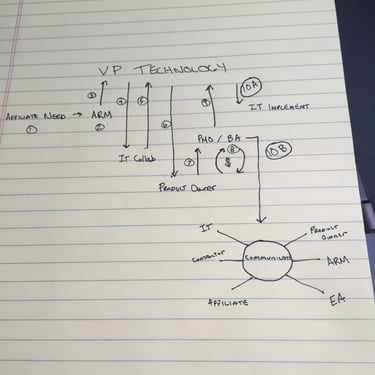 VP TECHNOLOGY
10A
3
4
5
6
9
IT IMPLEMENT
AFFILIATE NEED → ARM
1
2
PMO / BA
10B
IT Collab
7
8
$
PRODUCT OWNER
IT
PRODUCT OWNER
CONTRACTOR
COMMUNICATE
ARM
AFFILIATE
EA